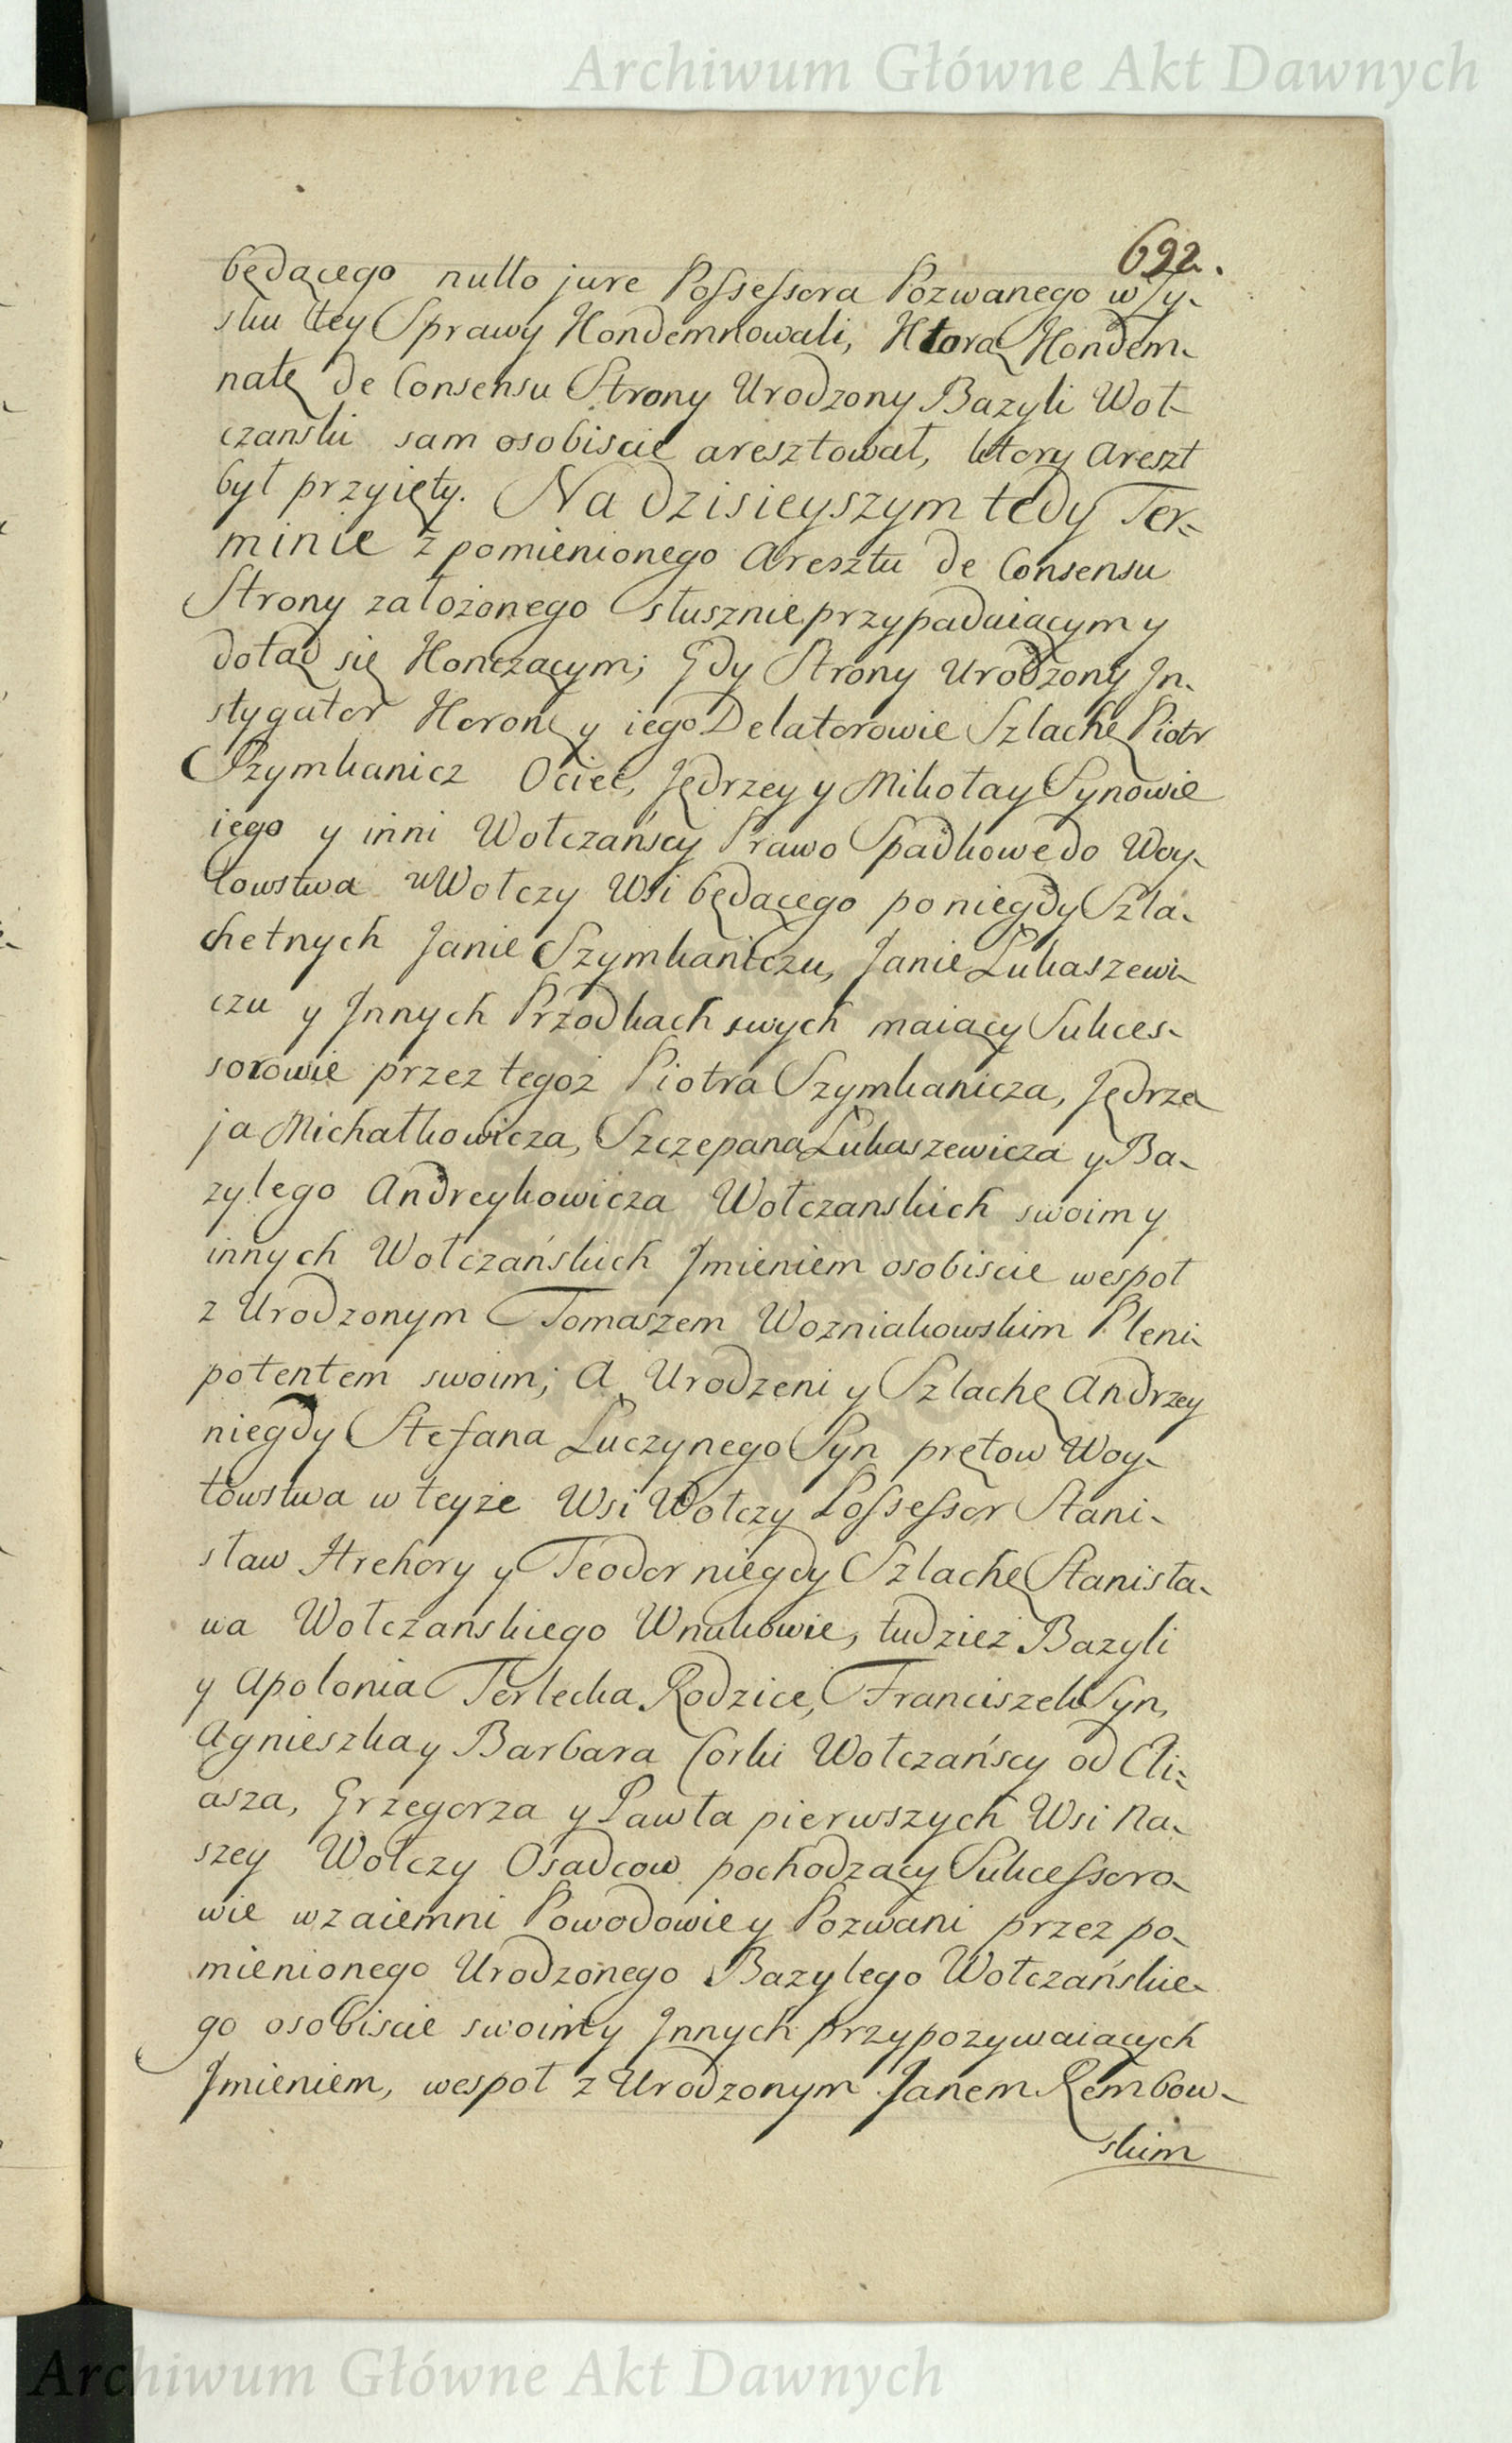 Archiwum Główne Akt Dawnych
692.
będącego nullo jure Possessora Pozwanego w Zy-
sku tey Sprawy Kondemnowali, Ktorą Kondem-
natę de Consensu Strony Urodzony Bazyli Woł-
czanski sam osobiscie aresztował, ktory Areszt
był przyięty. Na dzisieyszym tedy Ter-
minie z pomienionego Aresztu de Consensu
Strony założonego słusznie przypadaiącym y
dotąd się Kończącym; Gdy Strony Urodzony In-
stygator Koronę y iego Delatorowie Szlachę Piotr
Szymkanicz Ociec, Jędrzey y Mikołay Synowie
iego y inni Wołczańscy Prawo Spadkowe do Woy-
towstwa w Wołczy Wsi będącego po niegdy Szla-
chetnych Janie Szymkaniczu, Janie Lukaszewi-
czu y Innych Przodkach swych maiący Sukces-
sorowie przez tegoż Piotra Szymkanicza, Jędrze-
ja Michałkowicza, Szczepana Lukaszewicza y Ba-
zylego Andreykowicza Wołczanskich swoim y
innych Wołczańskich Imieniem osobiscie wespoł
z Urodzonym Tomaszem Wozniakowskim Pleni-
potentem swoim; A Urodzeni y Szlachę Andrzey
niegdy Stefana Luczynego Syn prętow Woy-
towstwa w teyże Wsi Wołczy Possessor Stani-
sław Hrehory y Teodor niegdy Szlachę Stanisła-
wa Wołczanskiego Wnukowie, tudzież Bazyli
y Apolonia Terlecka Rodzice, Franciszek Syn,
Agnieszka y Barbara Corki Wołczańscy od Eli-
asza, Grzegorza y Pawła pierwszych Wsi Na-
szey Wołczy Osadcow pochodzący Sukcessoro-
wie wzaiemni Powodowie y Pozwani przez po-
mienionego Urodzonego Bazylego Wołczańskie-
go osobiscie swoim y Innych przypozywaiących
Imieniem, wespoł z Urodzonym Janem Rembow-
skim
Archiwum Główne Akt Dawnych